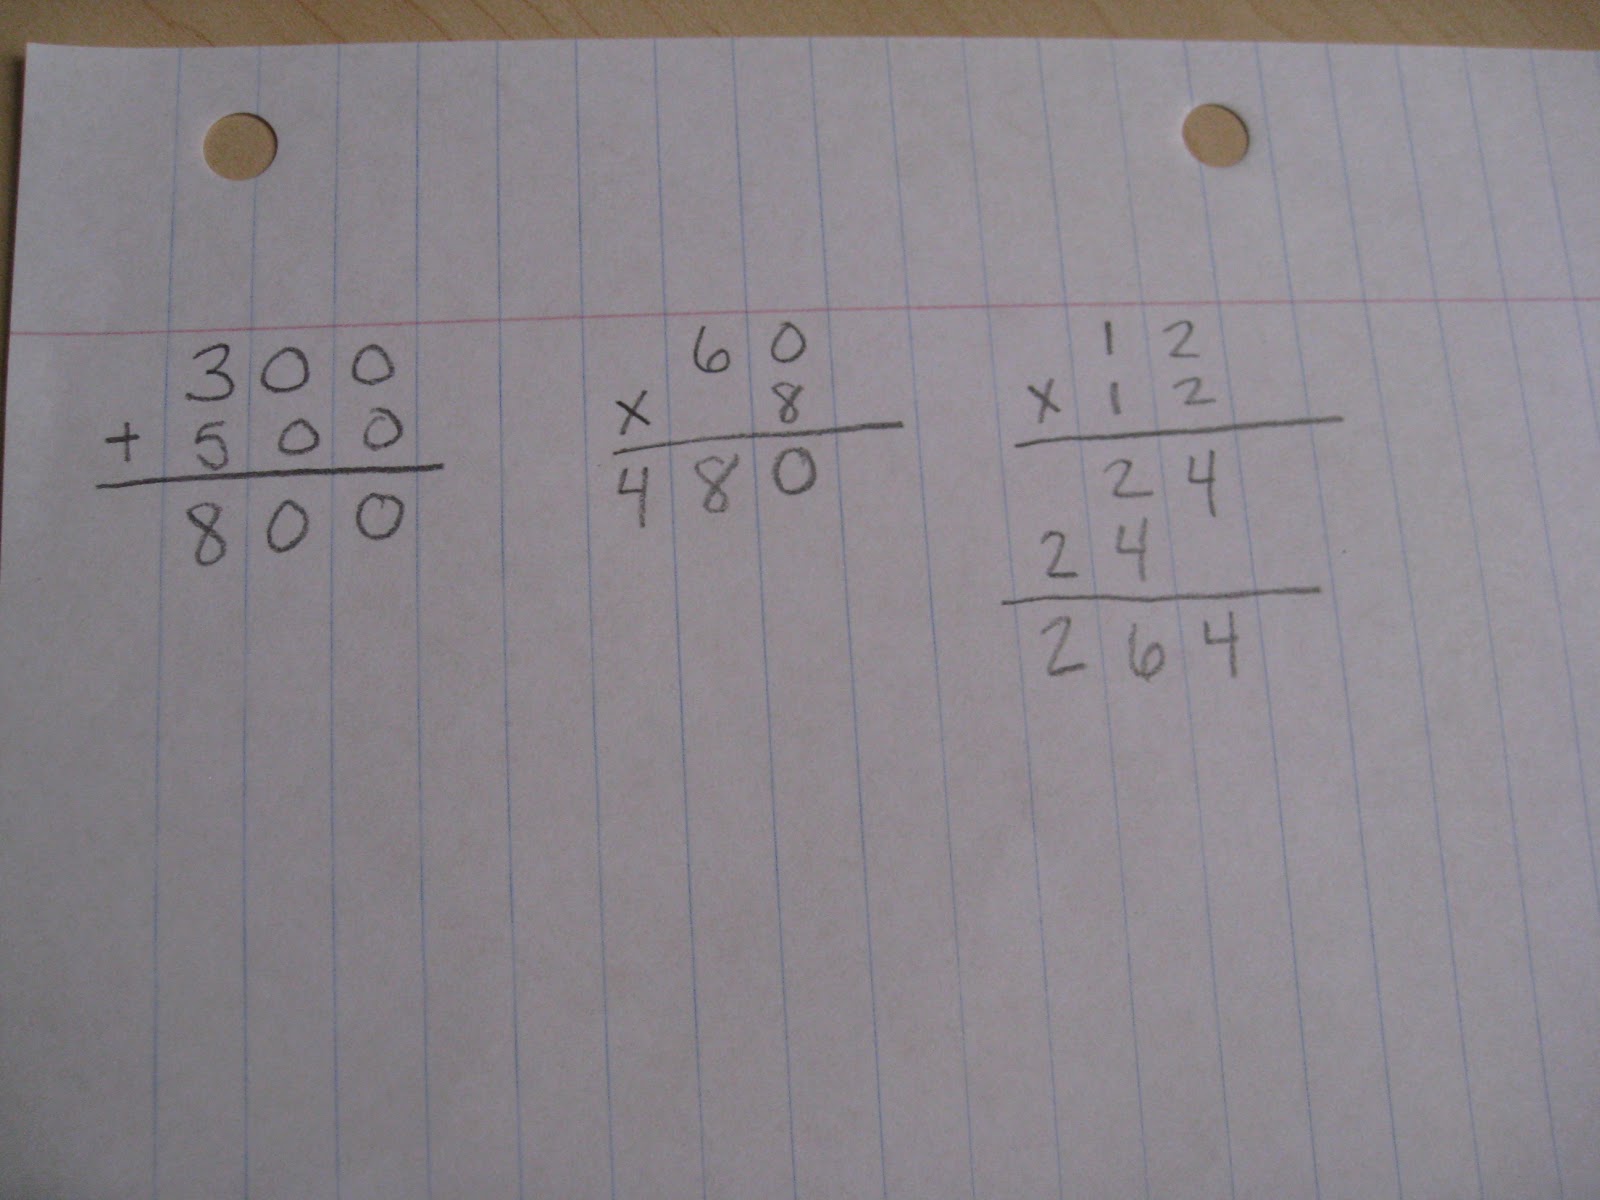 300
+ 500
800
60
x 8
480
12
x 12
24
24
264